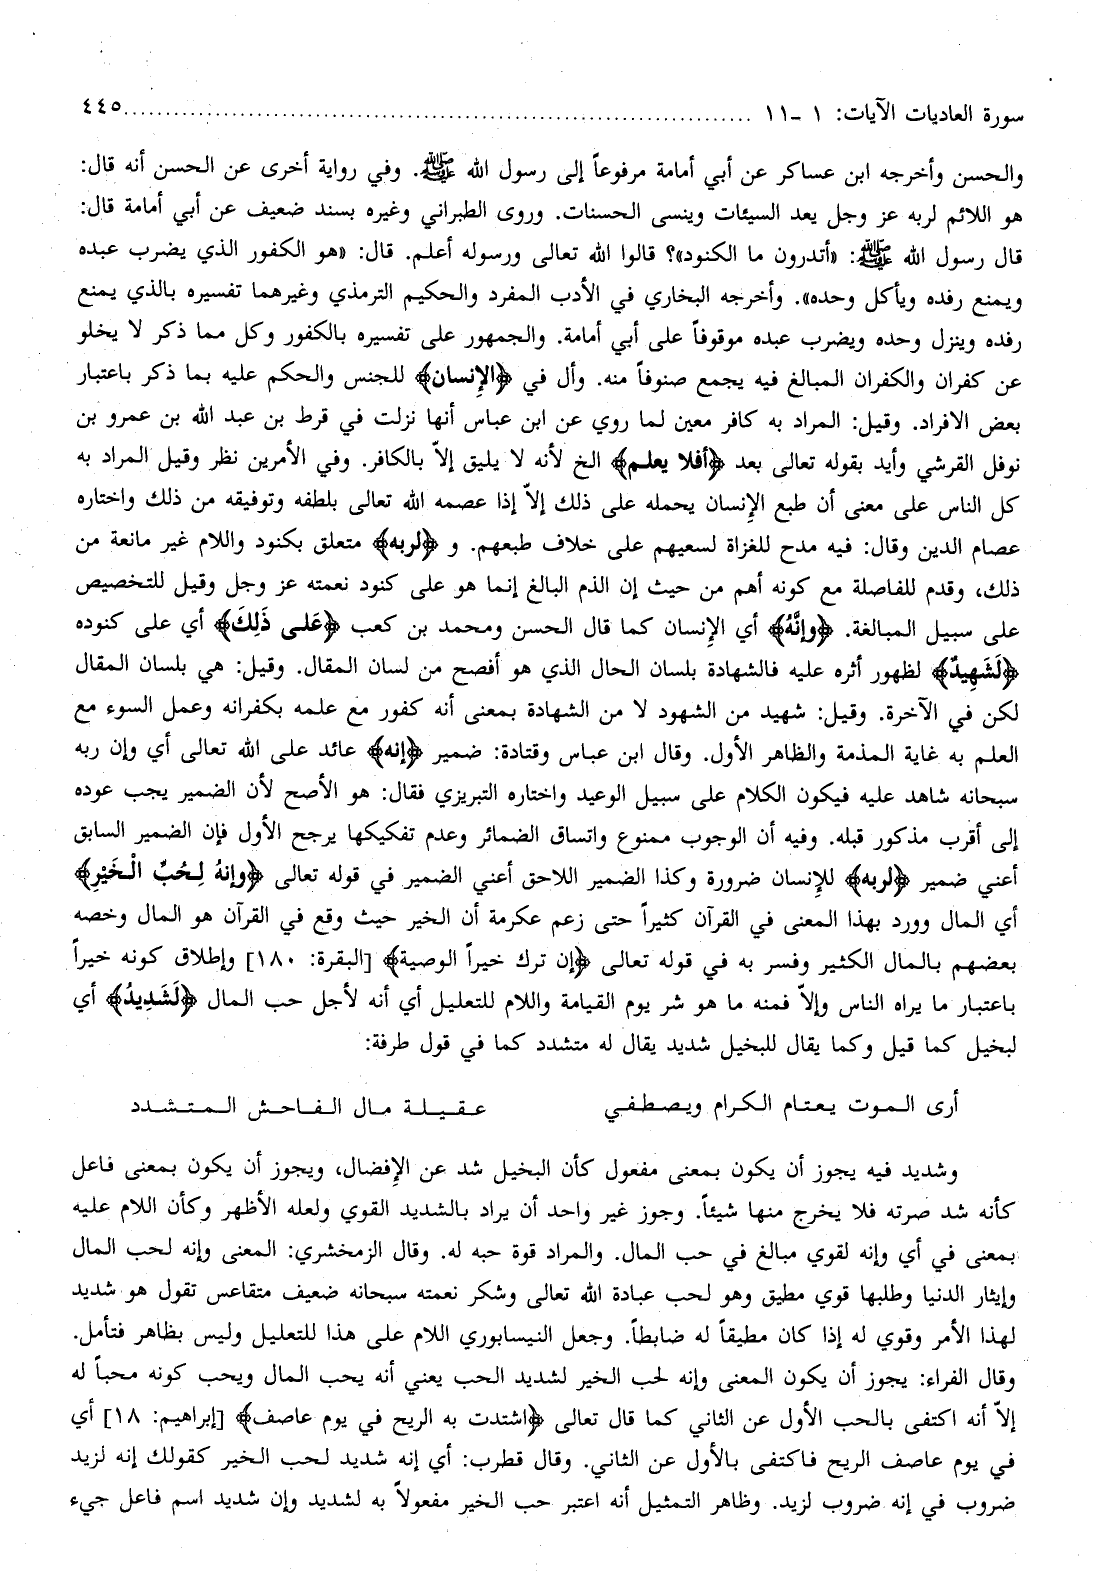 سورة العاديات الآيات: ١ -١١ ........................................................................... ٤٤٥
والحسن وأخرجه ابن عساكر عن أبي أمامة مرفوعاً إلى رسول الله ﷺ. وفي رواية أخرى عن الحسن أنه قال:
هو اللائم لربه عز وجل يعد السيئات وينسى الحسنات. وروى الطبراني وغيره بسند ضعيف عن أبي أمامة قال:
قال رسول الله ﷺ: «أتدرون ما الكنود»؟ قالوا الله تعالى ورسوله أعلم. قال: «هو الكفور الذي يضرب عبده
ويمنع رفده ويأكل وحده». وأخرجه البخاري في الأدب المفرد والحكيم الترمذي وغيرهما تفسيره بالذي يمنع
رفده وينزل وحده ويضرب عبده موقوفاً على أبي أمامة. والجمهور على تفسيره بالكفور وكل مما ذكر لا يخلو
عن كفران والكفران المبالغ فيه يجمع صنوفاً منه. وأل في ﴿الإنسان﴾ للجنس والحكم عليه بما ذكر باعتبار
بعض الافراد. وقيل: المراد به كافر معين لما روي عن ابن عباس أنها نزلت في قرط بن عبد الله بن عمرو بن
نوفل القرشي وأيد بقوله تعالى بعد ﴿أفلا يعلم﴾ الخ لأنه لا يليق إلاّ بالكافر. وفي الأمرين نظر وقيل المراد به
كل الناس على معنى أن طبع الإنسان يحمله على ذلك إلاّ إذا عصمه الله تعالى بلطفه وتوفيقه من ذلك واختاره
عصام الدين وقال: فيه مدح للغزاة لسعيهم على خلاف طبعهم. و ﴿لربه﴾ متعلق بكنود واللام غير مانعة من
ذلك، وقدم للفاصلة مع كونه أهم من حيث إن الذم البالغ إنما هو على كنود نعمته عز وجل وقيل للتخصيص
على سبيل المبالغة. ﴿وإنَّهُ﴾ أي الإنسان كما قال الحسن ومحمد بن كعب ﴿عَلى ذَلِكَ﴾ أي على كنوده
﴿لَشَهِيدٌ﴾ لظهور أثره عليه فالشهادة بلسان الحال الذي هو أفصح من لسان المقال. وقيل: هي بلسان المقال
لكن في الآخرة. وقيل: شهيد من الشهود لا من الشهادة بمعنى أنه كفور مع علمه بكفرانه وعمل السوء مع
العلم به غاية المذمة والظاهر الأول. وقال ابن عباس وقتادة: ضمير ﴿إنه﴾ عائد على الله تعالى أي وإن ربه
سبحانه شاهد عليه فيكون الكلام على سبيل الوعيد واختاره التبريزي فقال: هو الأصح لأن الضمير يجب عوده
إلى أقرب مذكور قبله. وفيه أن الوجوب ممنوع واتساق الضمائر وعدم تفكيكها يرجح الأول فإن الضمير السابق
أعني ضمير ﴿لربه﴾ للإنسان ضرورة وكذا الضمير اللاحق أعني الضمير في قوله تعالى ﴿وإنهُ لِحُبِّ الْخَيْرِ﴾
أي المال وورد بهذا المعنى في القرآن كثيراً حتى زعم عكرمة أن الخير حيث وقع في القرآن هو المال وخصه
بعضهم بالمال الكثير وفسر به في قوله تعالى ﴿إن ترك خيراً الوصية﴾ [البقرة: ١٨٠] وإطلاق كونه خيراً
باعتبار ما يراه الناس وإلاّ فمنه ما هو شر يوم القيامة واللام للتعليل أي أنه لأجل حب المال ﴿لَشَدِيدُ﴾ أي
لبخيل كما قيل وكما يقال للبخيل شديد يقال له متشدد كما في قول طرفة:
أرى الموت يعتام الكرام ويصطفي عقيلة مال الفاحش المتشدد
وشديد فيه يجوز أن يكون بمعنى مفعول كأن البخيل شد عن الإفضال، ويجوز أن يكون بمعنى فاعل
كأنه شد صرته فلا يخرج منها شيئاً. وجوز غير واحد أن يراد بالشديد القوي ولعله الأظهر وكأن اللام عليه
بمعنى في أي وإنه لقوي مبالغ في حب المال. والمراد قوة حبه له. وقال الزمخشري: المعنى وإنه لحب المال
وإيثار الدنيا وطلبها قوي مطيق وهو لحب عبادة الله تعالى وشكر نعمته سبحانه ضعيف متقاعس تقول هو شديد
لهذا الأمر وقوي له إذا كان مطيقاً له ضابطاً. وجعل النيسابوري اللام على هذا للتعليل وليس بظاهر فتأمل.
وقال الفراء: يجوز أن يكون المعنى وإنه لحب الخير لشديد الحب يعني أنه يحب المال ويحب كونه محباً له
إلاّ أنه اكتفى بالحب الأول عن الثاني كما قال تعالى ﴿اشتدت به الريح في يوم عاصف﴾ [إبراهيم: ١٨] أي
في يوم عاصف الريح فاكتفى بالأول عن الثاني. وقال قطرب: أي إنه شديد لحب الخير كقولك إنه لزيد
ضروب في إنه ضروب لزيد. وظاهر التمثيل أنه اعتبر حب الخير مفعولاً به لشديد وإن شديد اسم فاعل جيء